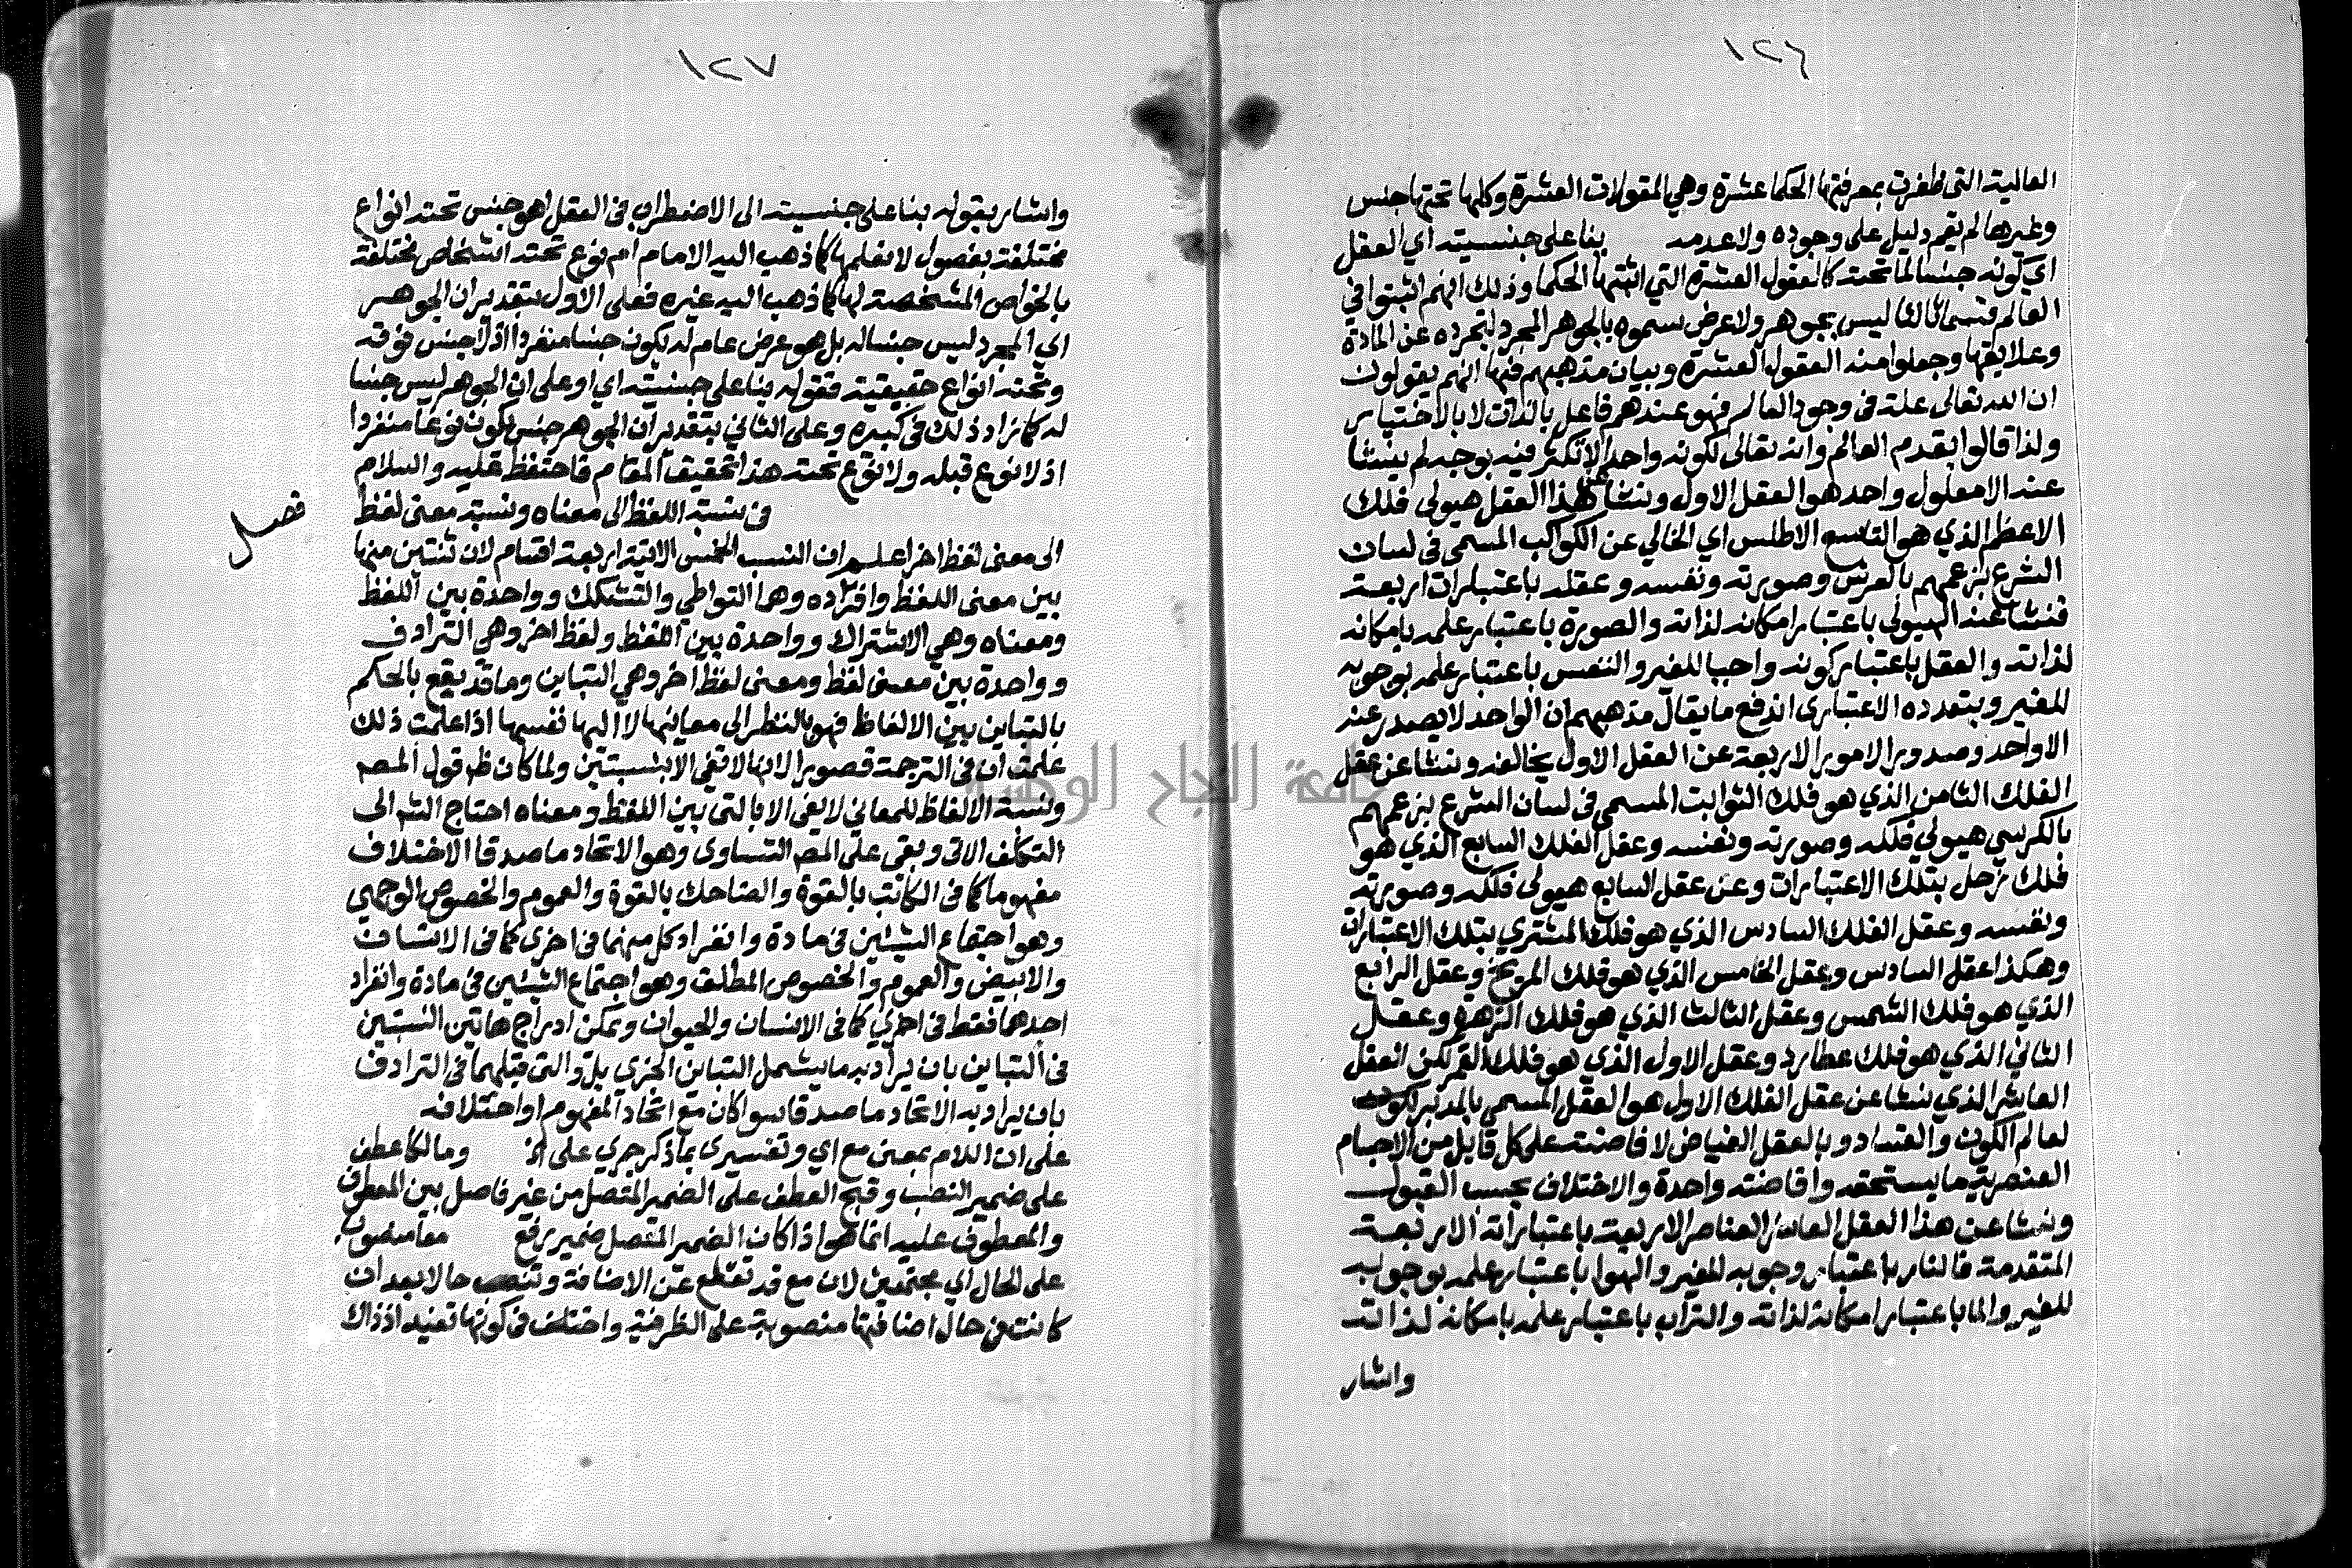 ١٢٦
العالية التى ظفرت بمعرفتها الحكما عشرة وهي المقولات العشرة وكلها تحتها جنس
وغيرها لم يقم دليل على وجوده ولا عدمه بنا على جنسيته اي العقل
اي كونه جنسا لما تحته كالعقول العشرة التي اثبتها الحكما وذلك انهم اثبتوا في
العالم قسما ثالثا ليس بجوهر ولا عرض سموه بالجوهر المجرد لتجرده عن المادة
وعلايقها وجعلوا منه العقول العشرة وبيان مذهبهم فيها انهم يقولون
ان الله تعالى علة فى وجود العالم فهو عندهم فاعل بالذات لا بالاختيار
ولذا قالوا بقدم العالم وانه تعالى لكونه واحدا لا تكثر فيه بوجه لم ينشا
عنه الا معلول واحد هو العقل الاول ونشا عن هذا العقل هيولى فلك
الاعظم الذي هو التاسع الاطلس اي الخالي عن الكواكب المسمى فى لسان
الشرع بزعمهم بالعرش وصورته ونفسه وعقله باعتبارات اربعة
فنشا عنه الهيولى باعتبار امكانه لذاته والصورة باعتبار علمه بامكانه
لذاته والعقل باعتبار كونه واجبا للغير والنفس باعتبار علمه بوجوبه
للغير وبتعدده الاعتبارى اندفع ما يقال مذهبهم ان الواحد لا يصدر عنه
الا واحد وصدور الامور الاربعة عن العقل الاول يخالفه ونشا عن عقل
الفلك الثامن الذي هو فلك الثوابت المسمى فى لسان الشرع بزعمهم
بالكرسي هيولي فلكه وصورته ونفسه وعقل الفلك السابع الذي هو
فلك زحل بتلك الاعتبارات وعن عقل السابع هيولى فلكه وصورته
ونفسه وعقل الفلك السادس الذي هو فلك المشتري بتلك الاعتبارات
وهكذا عقل السادس وعقل الخامس الذي هو فلك المريخ وعقل الرابع
الذي هو فلك الشمس وعقل الثالث الذي هو فلك الزهرة وعقل
الثاني الذي هو فلك عطارد وعقل الاول الذي هو فلك القمر لكن العقل
العاشر الذي نشا عن عقل الفلك الاول هو العقل المسمى بالمدبر لكونه
لعالم الكون والفساد وبالعقل الفياض لافاضته على كل قابل من الاجسام
العنصرية ما يستحقه وافاضته واحدة والاختلاف بحسب القبول
ونشا عن هذا العقل العاشر العناصر الاربعة باعتباراته الاربعة
المتقدمة فالنار باعتبار وجوبه للغير والهوا باعتبار علمه بوجوبه
للغير والما باعتبار امكانه لذاته والتراب باعتبار علمه بامكانه لذاته
واشار
١٢٧
واشار بقوله بنا على جنسيته الى الاضطراب فى العقل اهو جنس تحته انواع
مختلفة بفصول لا نعلمها كما ذهب اليه الامام ام نوع تحته اشخاص مختلفة
بالخواص المشخصة لها كما ذهب اليه غيره فعلى الاول بتقدير ان الجوهر
اي المجرد ليس جنسا له بل هو عرض عام له يكون جنسا منفردا اذ لا جنس فوقه
وتحته انواع حقيقية فقوله بنا على جنسيته اي او على ان الجوهر ليس جنسا
له كما زاد ذلك فى كبيره وعلى الثاني بتقدير ان الجوهر جنس يكون نوعا منفردا
اذ لا نوع قبله ولا نوع تحته هذا تحقيق المقام فاحتفظ عليه والسلام
فصل
فى نسبة اللفظ الى معناه ونسبة معنى لفظ
الى معنى لفظ اخر اعلم ان النسب الخمس الاتية اربعة اقسام لان ثنتين منها
بين معنى اللفظ وافراده وهما التواطي والتشكك وواحدة بين اللفظ
ومعناه وهي الاشتراك وواحدة بين اللفظ ولفظ اخر وهي الترادف
وواحدة بين معنى لفظ ومعنى لفظ اخر وهي التباين وما قد يقع بالحكم
بالتباين بين الالفاظ فهو بالنظر الى معاينها لا اليها نفسها اذا علمت ذلك
علمت ان فى الترجمة قصورا لانها لا تفي الا بنسبتين ولما كان ظم قول المصم
ونسبة الالفاظ للمعاني لا يفى الا بالتى بين اللفظ ومعناه احتاج الشم الى
التكلف الاتى وبقى على المصم التساوى وهو الاتحاد ما صدقا لا اختلاف
مفهوما كما فى الكاتب بالقوة والضاحك بالقوة والعموم والخصوص الوجهي
وهو اجتماع الشيئين فى مادة وانفراد كل منهما فى اخرى كما فى الانسان
والابيض والعموم والخصوص المطلق وهو اجتماع الشيئين فى مادة وانفراد
احدهما فقط فى اخرى كما فى الانسان والحيوان ويمكن ادراج هاتين النسبتين
فى التباين بان يراد به ما يشمل التباين الجزى بل والتى قبلهما فى الترادف
بان يراد به الاتحاد ما صدقا سوا كان مع اتحاد المفهوم او اختلافه
على ان اللام بمعنى مع اي وتفسيرى بما ذكر جري على ان وما لكا عطف
على ضمير النصب وقبح العطف على الضمير المتصل من غير فاصل بين المعطوف
والمعطوف عليه انما هو اذا كان الضمير المتصل ضمير رفع معا منصوب
على الحال اي مجتمعين لان مع قد تقطع عن الاضافة وتنصب حالا بعد ان
كانت فى حال اضافتها منصوبة على الظرفية واختلف فى كونها تفيد اذ ذاك
جامعة النجاح الوطنية